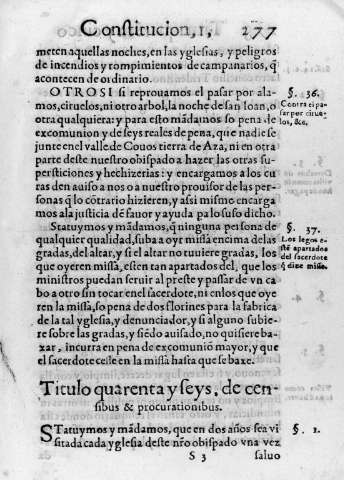 Constitucion, 1, 277
meten aquellas noches, en las yglesias, y peligros
de incendios y rompimientos de campanarios, q̃
acontecen de ordinario.
OTROSI si reprouamos el pasar por ala-
mos, ciruelos, ni otro arbol, la noche de san Ioan, o
otra qualquiera: y para esto mãdamos so pena de
excomunion y de seys reales de pena, que nadie se
junte en el valle de Couos tierra de Aza, ni en otra
parte deste nuestro obispado a hazer las otras su-
persticiones y hechizerias: y encargamos a los cu
ras den auiso a nos o a nuestro prouisor de las per-
sonas q̃ lo cõtrario hizieren, y assi mismo encarga
mos a la justicia dẽ fauor y ayuda pa lo suso dicho.
§. 36.
Contra el pa-
sar por cirue-
los, &c.
Statuymos y mãdamos, q̃ ninguna persona de
qualquier qualidad, suba a oyr missa encima de las
gradas, del altar, y si el altar no tuuiere gradas, los
que oyeren missa, esten tan apartados del, que los
ministros puedan seruir al preste y passar de vn ca
bo a otro sin tocar en el sacerdote, ni en los que oye
ren la missa, so pena de dos florines para la fabrica
de la tal yglesia, y denunciador, y si alguno subie-
re sobre las gradas, y siẽdo auisado, no quisiere ba-
xar, incurra en pena de excomunion mayor, y que
el sacerdote cese en la missa hasta que se baxe.
§. 37.
Los legos es-
tẽ apartados
del sacerdote
q̃ dize missa.
Titulo quarenta y seys, de cen-
sibus & procurationibus.
Statuymos y mãdamos, que en dos años sea vi
sitada cada yglesia deste nr̃o obispado vna vez
§. 1.
S 3 saluo